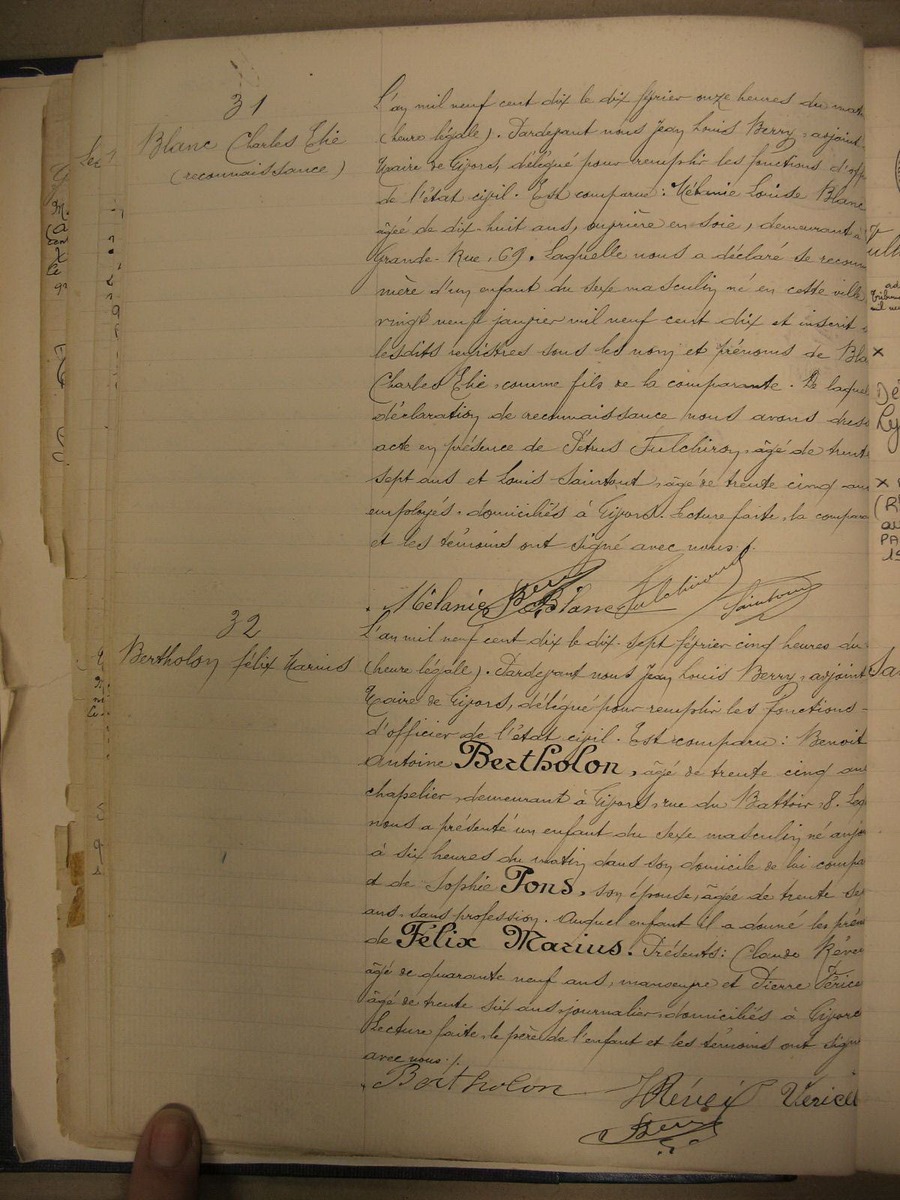 31
Blanc Charles Elie
(reconnaissance)
L'an mil neuf cent dix le dix février onze heures du mat
(heure légale). Pardevant nous Jean Louis Berry, adjoint
Maire de Givors, délégué pour remplir les fonctions d'off
de l'état civil. Est comparue : Mélanie Louise Blanc
âgée de dix-huit ans, ouvrière en soie, demeurant à
Grande-Rue, 69. Laquelle nous a déclaré se recon
mère d'un enfant du sexe masculin né en cette ville
vingt neuf janvier mil neuf cent dix et inscrit
lesdits registres sous les nom et prénoms de Bla
Charles Elie, comme fils de la comparante. De laquel
déclaration de reconnaissance nous avons dress
acte en présence de Pétrus Fulchiron, âgé de trente
sept ans et Louis Saintout, âgé de trente cinq an
employés, domiciliés à Givors. Lecture faite, la compara
et les témoins ont signé avec nous ./.
Mélanie Blanc Berry Fulchiron Saintout
32
Bertholon Félix Marius
L'an mil neuf cent dix le dix-sept février cinq heures du
(heure légale). Pardevant nous Jean Louis Berry, adjoint
Maire de Givors, délégué pour remplir les fonctions
d'officier de l'état civil. Est comparu : Benoit
Antoine Bertholon, âgé de trente cinq an
chapelier, demeurant à Givors, rue du Battoir, 8. Leq
nous a présenté un enfant du sexe masculin né aujo
à six heures du matin dans son domicile de lui compa
et de Sophie Pons, son épouse, âgée de trente se
ans, sans profession. Auquel enfant il a donné les prén
de Félix Marius. Présents : Claude Réve
âgé de quarante neuf ans, manoeuvre et Pierre Véric
âgé de trente six ans, journalier, domiciliés à Givors
Lecture faite, le père de l'enfant et les témoins ont sign
avec nous ./.
Bertholon Vericel
Berry